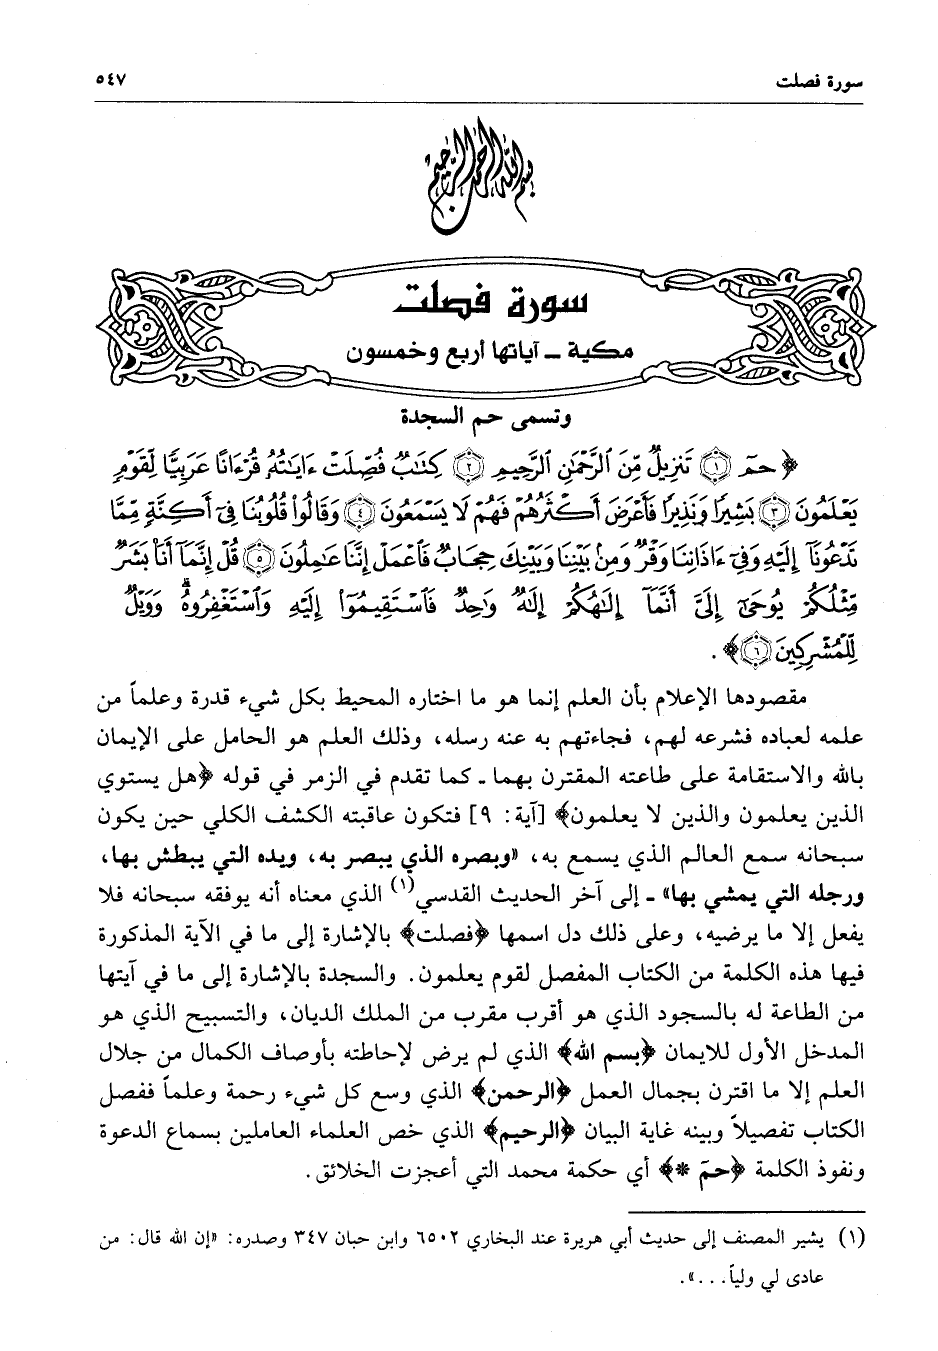 سورة فصلت ٥٤٧
بسم الله الرحمن الرحيم
سورة فصلت
مكية ـ آياتها أربع وخمسون
وتسمى حم السجدة
﴿حمٓ ١ تَنزِيلٌ مِّنَ ٱلرَّحْمَٰنِ ٱلرَّحِيمِ ٢ كِتَٰبٌ فُصِّلَتْ ءَايَٰتُهُۥ قُرْءَانًا عَرَبِيًّا لِّقَوْمٍ
يَعْلَمُونَ ٣ بَشِيرًا وَنَذِيرًا فَأَعْرَضَ أَكْثَرُهُمْ فَهُمْ لَا يَسْمَعُونَ ٤ وَقَالُوا۟ قُلُوبُنَا فِىٓ أَكِنَّةٍ مِّمَّا
تَدْعُونَآ إِلَيْهِ وَفِىٓ ءَاذَانِنَا وَقْرٌ وَمِنۢ بَيْنِنَا وَبَيْنِكَ حِجَابٌ فَٱعْمَلْ إِنَّنَا عَٰمِلُونَ ٥ قُلْ إِنَّمَآ أَنَا۠ بَشَرٌ
مِّثْلُكُمْ يُوحَىٰٓ إِلَىَّ أَنَّمَآ إِلَٰهُكُمْ إِلَٰهٌ وَٰحِدٌ فَٱسْتَقِيمُوٓا۟ إِلَيْهِ وَٱسْتَغْفِرُوهُ ۗ وَوَيْلٌ
لِّلْمُشْرِكِينَ ٦﴾ .
مقصودها الإعلام بأن العلم إنما هو ما اختاره المحيط بكل شيء قدرة وعلماً من
علمه لعباده فشرعه لهم، فجاءتهم به عنه رسله، وذلك العلم هو الحامل على الإيمان
بالله والاستقامة على طاعته المقترن بهما ـ كما تقدم في الزمر في قوله ﴿هل يستوي
الذين يعلمون والذين لا يعلمون﴾ [آية: ٩] فتكون عاقبته الكشف الكلي حين يكون
سبحانه سمع العالم الذي يسمع به، «وبصره الذي يبصر به، ويده التي يبطش بها،
ورجله التي يمشي بها» ـ إلى آخر الحديث القدسي(١) الذي معناه أنه يوفقه سبحانه فلا
يفعل إلا ما يرضيه، وعلى ذلك دل اسمها ﴿فصلت﴾ بالإشارة إلى ما في الآية المذكورة
فيها هذه الكلمة من الكتاب المفصل لقوم يعلمون. والسجدة بالإشارة إلى ما في آيتها
من الطاعة له بالسجود الذي هو أقرب مقرب من الملك الديان، والتسبيح الذي هو
المدخل الأول للايمان ﴿بسم الله﴾ الذي لم يرض لإحاطته بأوصاف الكمال من جلال
العلم إلا ما اقترن بجمال العمل ﴿الرحمن﴾ الذي وسع كل شيء رحمة وعلماً ففصل
الكتاب تفصيلاً وبينه غاية البيان ﴿الرحيم﴾ الذي خص العلماء العاملين بسماع الدعوة
ونفوذ الكلمة ﴿حمٓ *﴾ أي حكمة محمد التي أعجزت الخلائق.
(١) يشير المصنف إلى حديث أبي هريرة عند البخاري ٦٥٠٢ وابن حبان ٣٤٧ وصدره: «إن الله قال: من
عادى لي ولياً...».